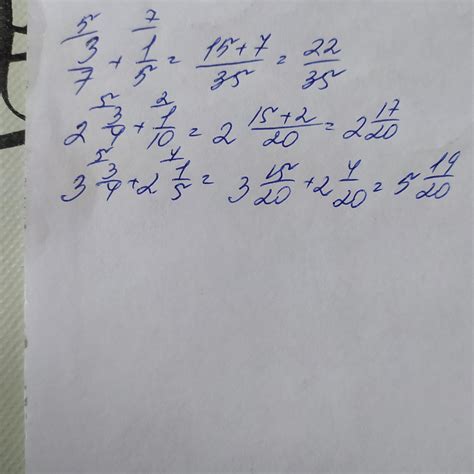 ⁵3/7 + ⁷1/5 = (15+7)/35 = 22/35
2 ⁵3/4 + ²1/10 = 2 (15+2)/20 = 2 17/20
3 ⁵3/4 + 2 ⁴1/5 = 3 15/20 + 2 4/20 = 5 19/20